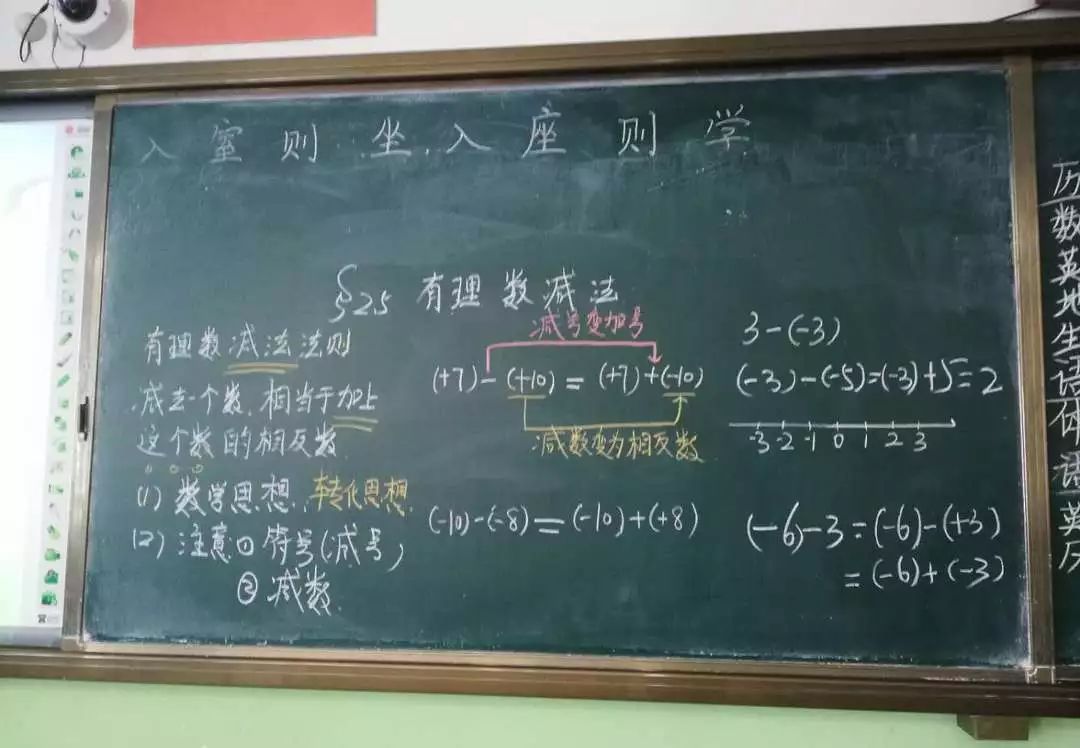 入室则坐入座则学
§2.5 有理数减法
有理数减法法则
减去一个数,相当于加上
这个数的相反数
(1) 数学思想,转化思想
(2) 注意①符号(减号)
②减数
减号变加号
(+7)-(+10)=(+7)+(-10)
减数变为相反数
(-10)-(-8)=(-10)+(+8)
3-(-3)
(-3)-(-5)=(-3)+5=2
-3 -2 -1 0 1 2 3
(-6)-3=(-6)-(+3)
=(-6)+(-3)
历
数
英
地
生
语
体
英
历